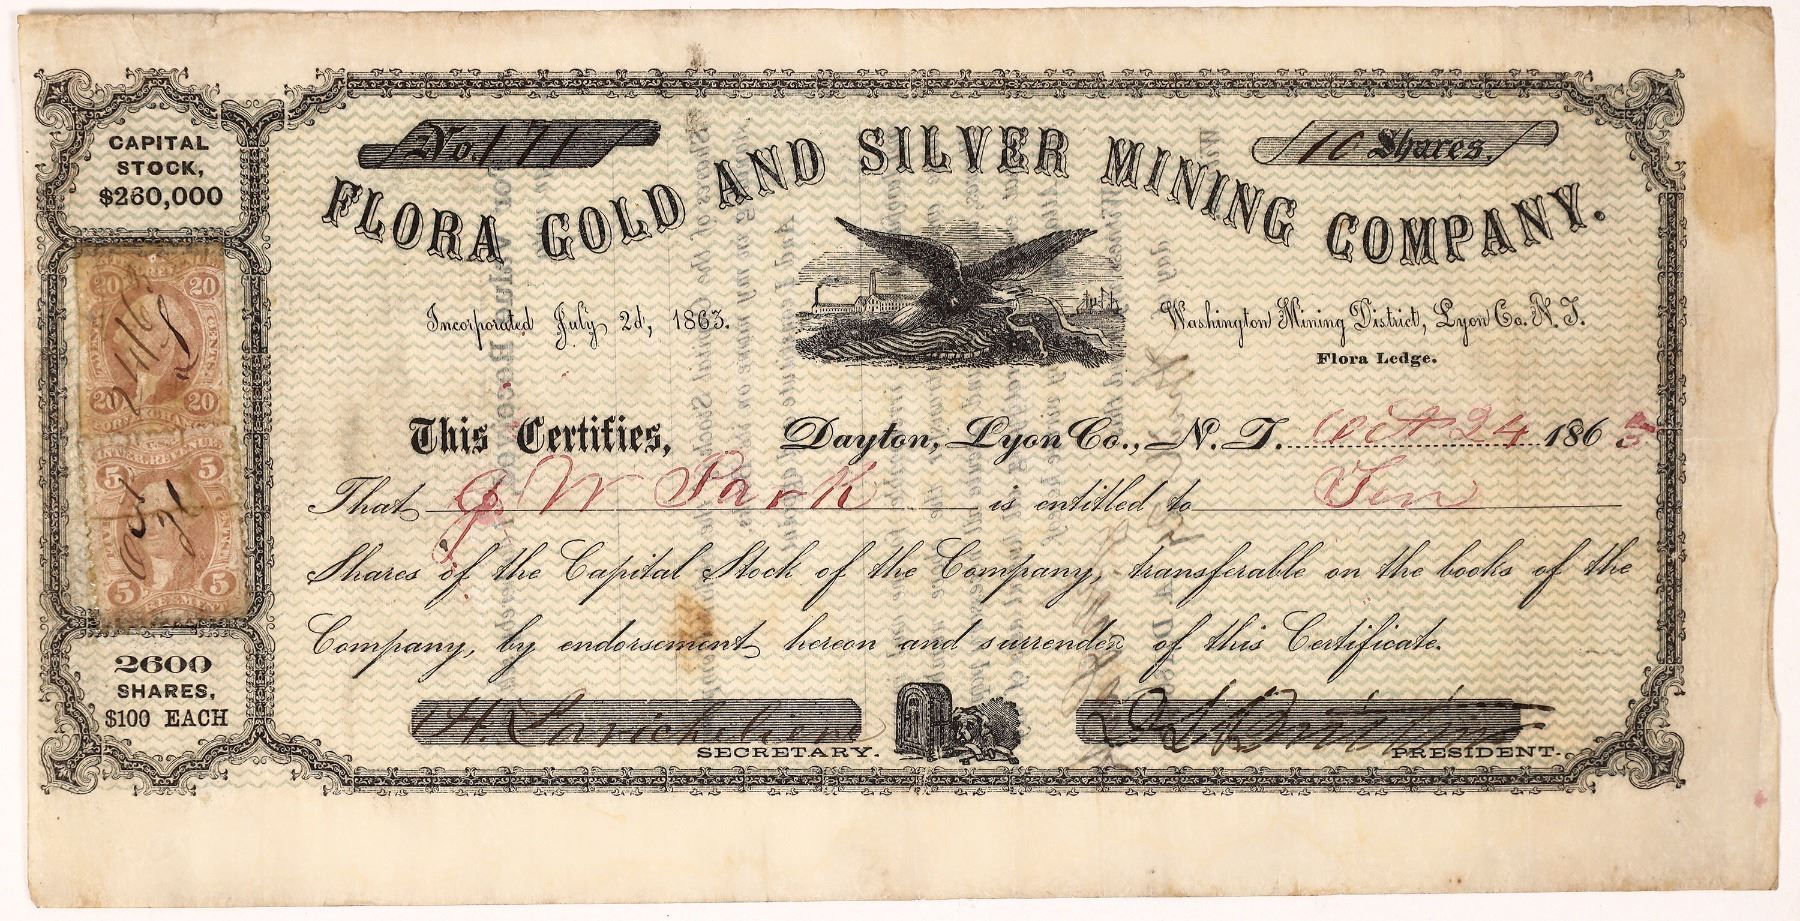 CAPITAL
STOCK,
$260,000
No. 171
10 Shares.
FLORA GOLD AND SILVER MINING COMPANY.
Incorporated July 2d, 1863.
Washington Mining District, Lyon Co. N. T.
Flora Ledge.
20 20
20 20
U.S. INTER. REVENUE
5
5 5
Oct
24
This Certifies, Dayton, Lyon Co., N. T. Oct 24 1863
That J W Park is entitled to Ten
Shares of the Capital Stock of the Company, transferable on the books of the
Company, by endorsement hereon and surrender of this Certificate.
2600
SHARES,
$100 EACH
SECRETARY.
PRESIDENT.